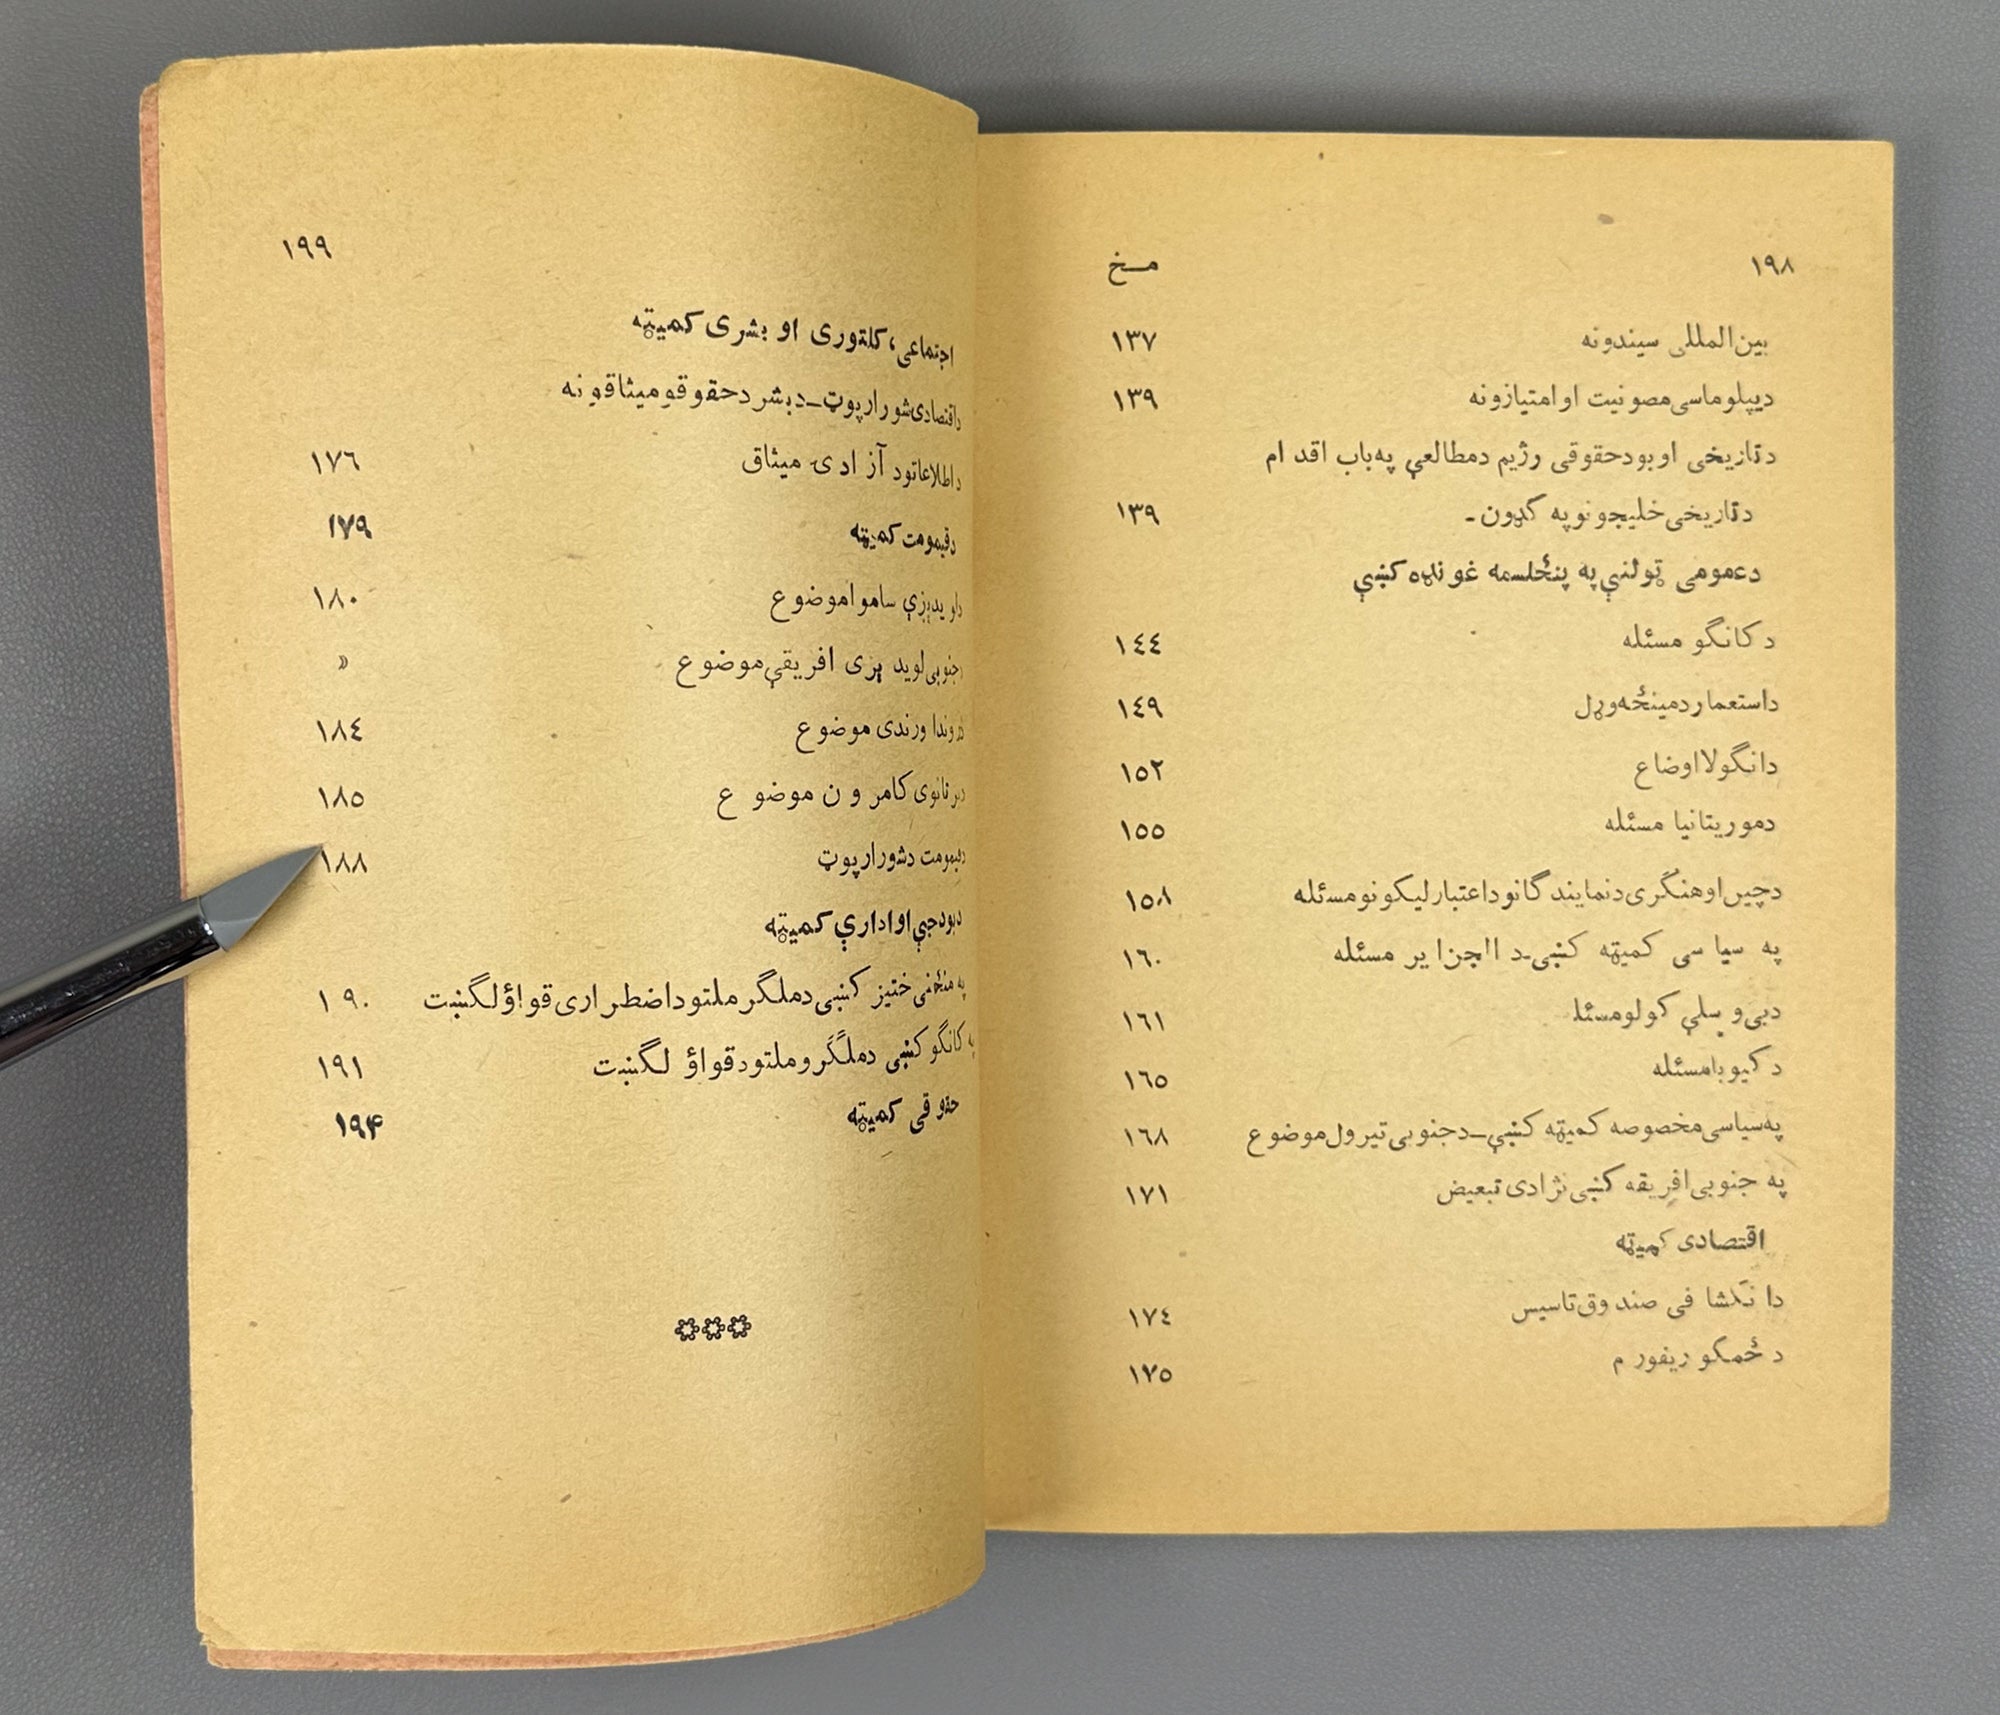 ١٩٨
مــخ
بین‌المللی سیندونه ١٣٧
دیپلوماسی مصونیت او امتیازونه ١٣٩
دتاریخی او بودحقوقی رژیم دمطالعې په باب اقدام
دتاریخی خلیجونو په ګډون - ١٣٩
دعمومی ټولنې په پنځلسمه غونډه کښې
د کانګو مسئله ١٤٤
داستعمار دمینځه وړل ١٤٩
دانګولا اوضاع ١٥٢
دموریتانیا مسئله ١٥٥
دچین اوهنګری دنمایندګانو داعتبار لیکونو مسئله ١٥٨
په سیاسی کمیټه کښې-د الجزایر مسئله ١٦٠
دبی وسلې کولو مسئله ١٦١
د کیوبا مسئله ١٦٥
په سیاسی مخصوصه کمیټه کښې–دجنوبی تیرول موضوع ١٦٨
په جنوبی افریقه کښې نژادی تبعیض ١٧١
اقتصادی کمیټه
دانکشافی صندوق تاسیس ١٧٤
د ځمکو ریفورم ١٧٥
١٩٩
اجتماعی، کلتوری او بشری کمیټه
داقتصادی شورا رپوټ–دبشر دحقوقو میثاقونه
داطلاعاتو د آزادی میثاق ١٧٦
دقیمومت کمیټه ١٧٩
دلویدیزې ساموا موضوع ١٨٠
جنوبی لویدیزی افریقې موضوع »
دروندا ورندی موضوع ١٨٤
دبرتانوی کامرون موضوع ١٨٥
دقیمومت دشورا رپوټ ١٨٨
دبودجې او اداری کمیټه
په منځنی ختیز کښې دملګر ملتو داضطراری قواؤ لګښت ١٩٠
په کانګو کښې دملګرو ملتو دقواؤ لګښت ١٩١
حقوقی کمیټه ١٩۴